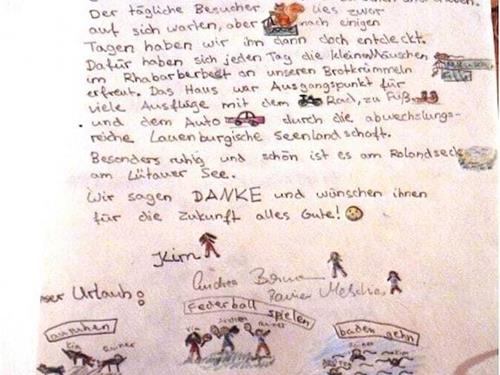 Der tägliche Besucher lies zwar
auf sich warten, aber nach einigen
Tagen haben wir ihn dann doch entdeckt.
Dafür haben sich jeden Tag die kleinen Mäuschen
im Rhabarberbeet an unseren Brotkrümeln
erfreut. Das Haus war Ausgangspunkt für
viele Ausflüge mit dem Rad, zu Fuß
und dem Auto durch die abwechslungs-
reiche Lauenburgische Seenlandschaft.
Besonders ruhig und schön ist es am Rolandseck
am Lütauer See.
Wir sagen DANKE und wünschen ihnen
für die Zukunft alles Gute!
Kim
Andrea
Rainer
ser Urlaub:
ausruhen
Federball spielen
baden gehn